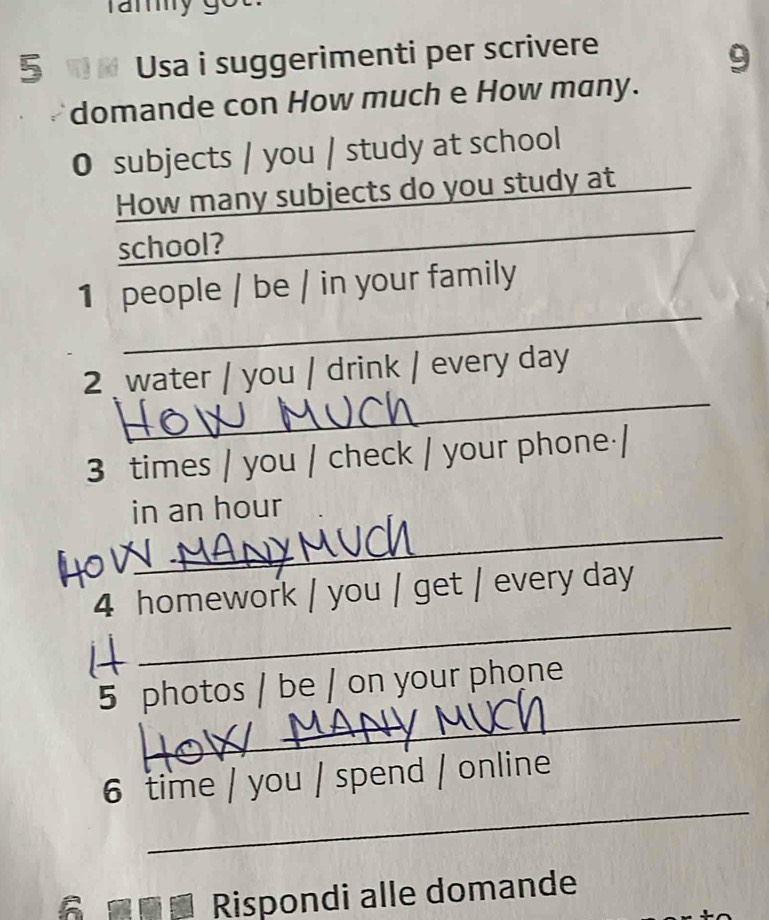 5 Usa i suggerimenti per scrivere
domande con How much e How many.
9
0 subjects / you / study at school
How many subjects do you study at
school?
1 people / be / in your family
2 water / you / drink / every day
HOW MUCH
3 times / you / check / your phone /
in an hour
HOW MANY MUCH
4 homework / you / get / every day
H
5 photos / be / on your phone
HOW MANY MUCH
6 time / you / spend / online
6 Rispondi alle domande